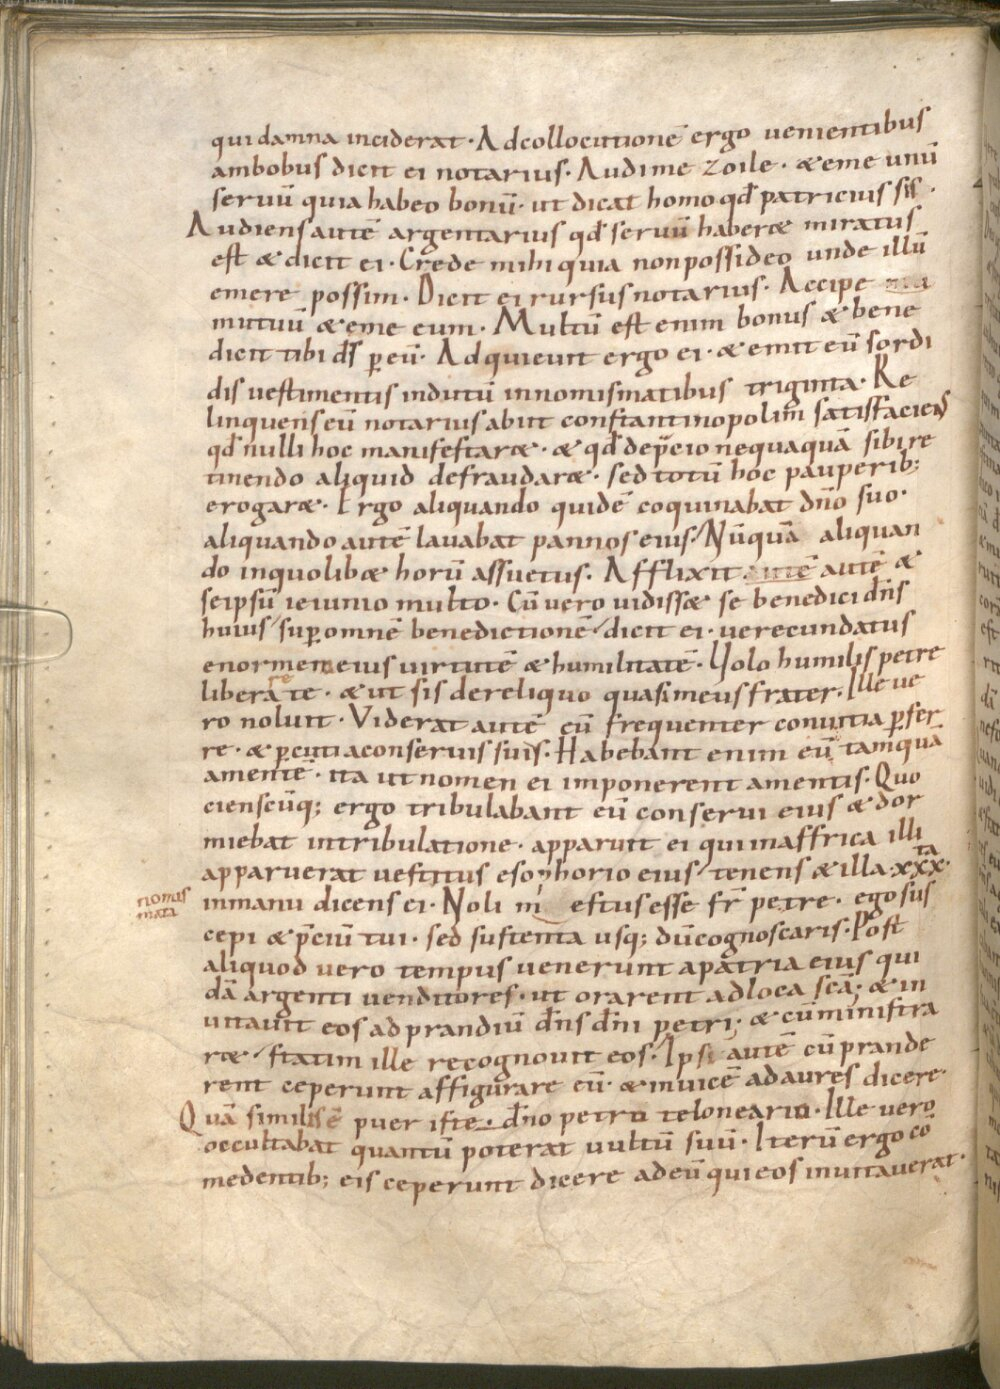 qui damna inciderat · Ad collocutionē ergo venientibus
ambobus dicit ei notarius · Audi me zoile · & eme unū
seruū quia habeo bonū · ut dicat homo qđ patricius sis ·
Audiens autē argentarius qđ seruū haber& miratus
est & dicit ei · Crede mihi quia non possideo unde illū
emere possim · Dicit ei rursus notarius · Accipe
mutuū & eme eum · Multū est enim bonus & bene
dicit tibi d̄s ꝑ eū · Adquieuit ergo ei · & emit eū sordi
dis uestimentis indutū in nomismatibus triginta · Re
linquens eū notarius abiit constantinopolim satisfaciens
qđ nulli hoc manifestar& · & qđ de p̄cio nequaquā sibi re
tinendo aliquid defraudar& · sed totū hoc pauperib;
erogar& · Ergo aliquando quidē coquinabat dn̄o suo ·
aliquando autē lauabat pannos eius · Nūquā aliquan
do in quolib& horū assuetus · Afflixit autē autē &
seipsū ieiunio multo · Cū vero uidiss& se benedici dn̄s
huius super omnē benedictionē dicit ei · verecundatus
enormem eius uirtutē & humilitatē · Uolo humilis petre
liberare te · & ut sis de reliquo quasi meus frater · Ille ue
ro noluit · Viderat autē eū frequenter conuitia ꝑfer
re · & ꝑcuti a conseruis suis · Habebant enim eū tamquā
amentē · ita ut nomen ei imponerent amentis · Quo
cienscūq; ergo tribulabant eū conserui eius & dor
miebat in tribulatione · apparuit ei qui in affrica illi
apparuerat uestitus esophorio eius tenens & illa · xxx ta ·
nomis
mata
in manu dicens ei · Noli m estus esse fr̄ petre · ego sus
cepi & p̄ciū tui · sed sustenta usq; dū cognoscaris · Post
aliquod vero tempus uenerunt a patria eius qui
dā argenti uenditores · ut orarent ad loca sc̄a; & in
uitauit eos ad prandiū dn̄s dn̄i petri; & cū ministra
r& statim ille recognouit eos · Ipsi autē cū prande
rent ceperunt affigurare eū · & inuicē ad aures dicere ·
Quā similis ē puer iste · dn̄o petro teloneario · Ille vero
occultabat quantū poterat uultū suū · Iterū ergo co
medentib; eis ceperunt dicere ad eū qui eos inuitauerat ·